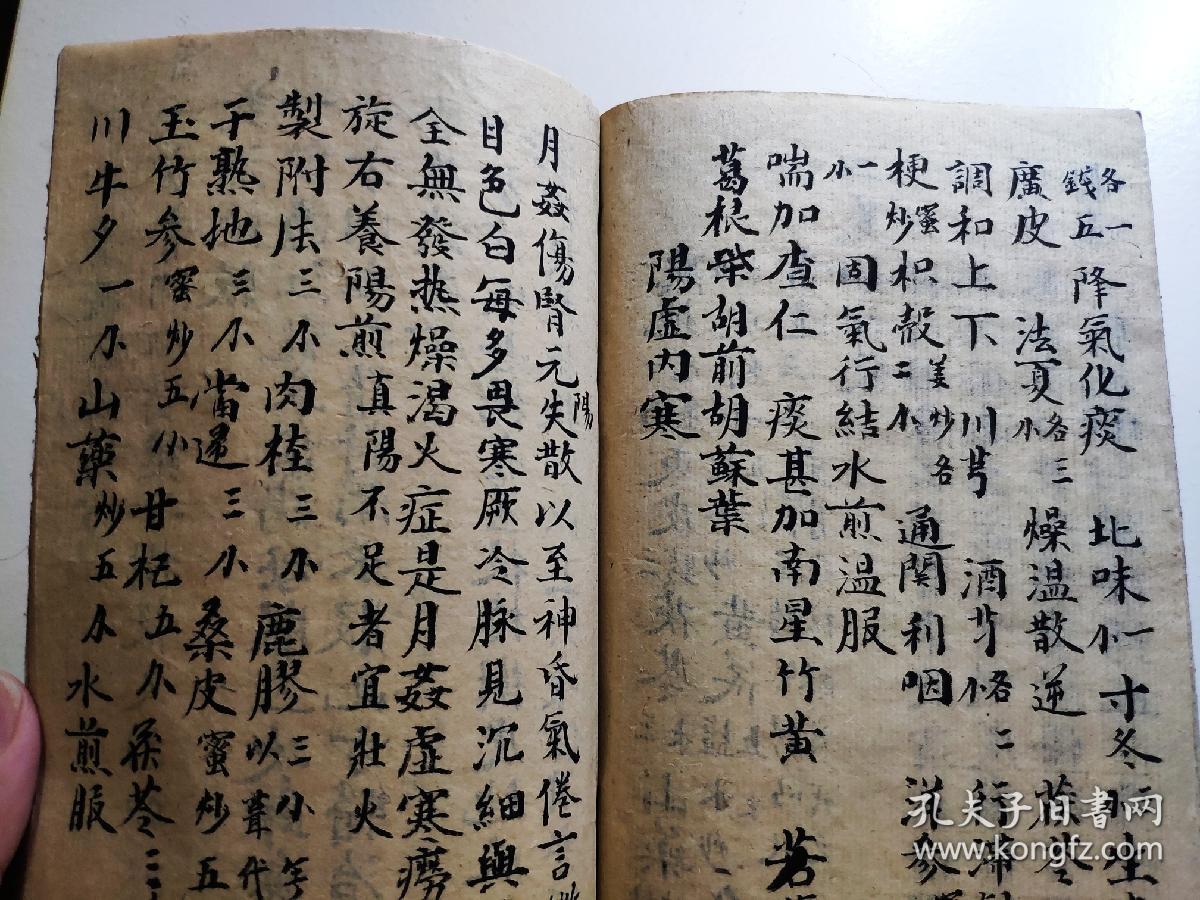 各一
錢五 降氣化痰 北味一小 寸冬
廣皮 法夏各三小 燥温散逆 茯苓
調和上下 川芎 酒芍各二小 行滯
梗蜜炒 枳殼二小 姜炒各 通関利咽 洋参
一小 固氣行結水煎温服
喘加查仁 痰甚加南星竹黄 若
葛根柴胡前胡蘇葉
陽虚内寒
月姦傷腎元陽失散以至神昏氣倦言
目色白每多畏寒厥冷脉見沉細與
全無發热燥渴火症是月姦虚寒癆
旋右養陽煎真陽不足者宜壯火
製附法三小 肉桂三小 鹿膠三小 年
以茸代
干熟地三小 當逓三小 桑皮蜜炒五
玉竹参蜜炒五小 甘杞五小 茯苓二
川牛夕一小 山藥炒五小 水煎服
孔夫子旧书网
www.kongfz.com